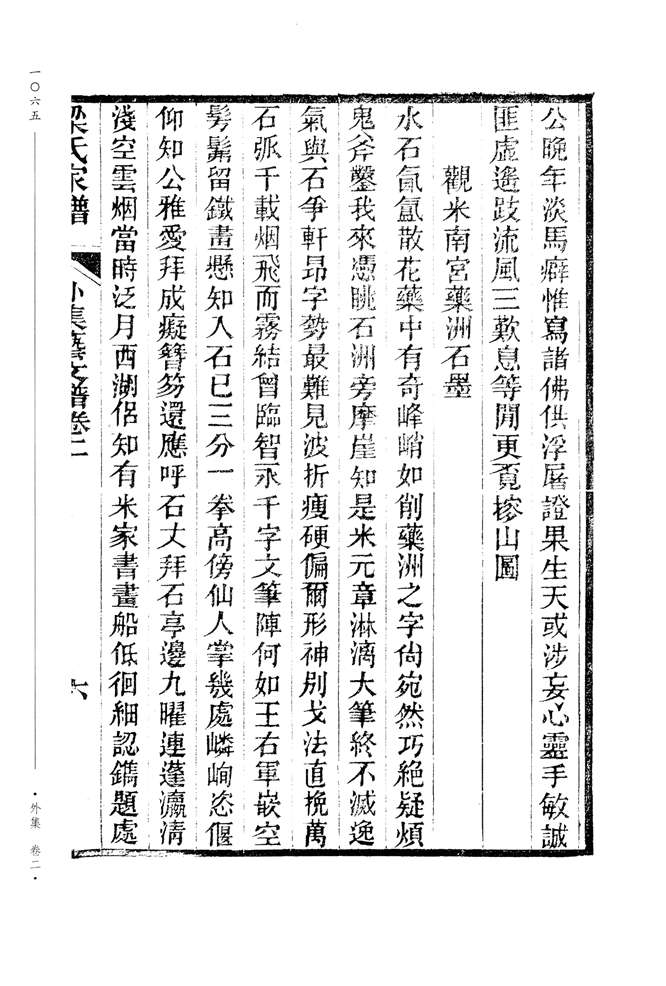 公晚年淡馬癖惟寫諸佛供浮屠證果生天或涉妄心靈手敏誠
匪虛遙跂流風三歎息等閒更覓㮶山圖
觀米南宮藥洲石墨
水石氤氳散花藥中有奇峰峭如削藥洲之字尙宛然巧絶疑煩
鬼斧鑿我來憑眺石洲旁摩崖知是米元章淋漓大筆終不滅逸
氣與石爭軒昂字勢最難見波折瘦硬偏爾形神别戈法直挽萬
石弧千載烟飛而霧結曾臨智永千字文筆陣何如王右軍嵌空
髣髴留鐵畫懸知入石已三分一拳高傍仙人掌幾處嶙峋恣偃
仰知公雅愛拜成癡簪笏還應呼石丈拜石亭邊九曜連蓬瀛淸
淺空雲烟當時泛月西湖侶知有米家書畫船低徊細認鐫題處
梁氏家譜
外集藝文譜卷二
六
一〇六五
·外集 卷二·